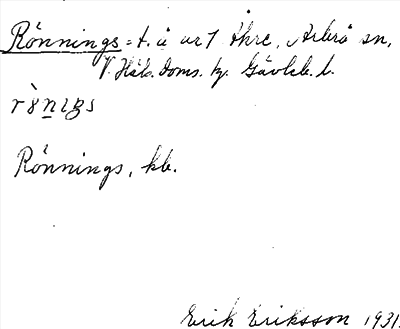 Rönnings = t. å nr 1 Åkre, Arbrå sn,
V. Häls. doms. hg. Gävleb. l.
Rönnings, kb.
Erik Eriksson 1931.